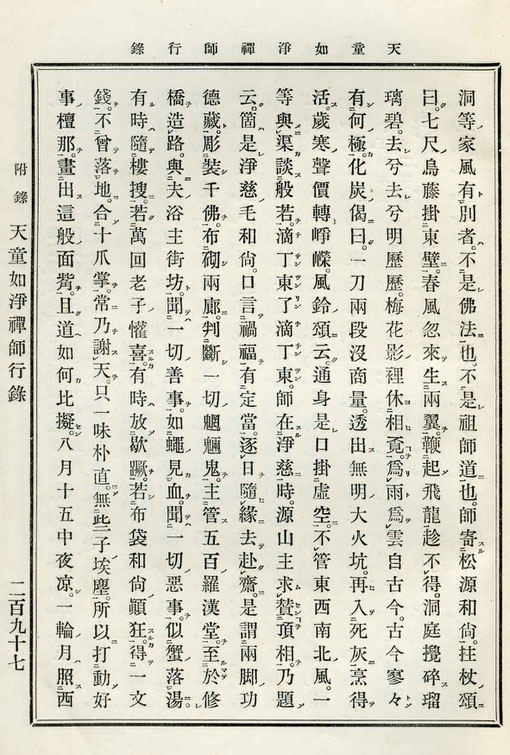 天童如淨禪師行錄
洞等家風有別者。不是佛法也。不是祖師道也。師寄松源和尙。拄杖頌
曰。七尺烏藤掛東壁。春風忽來生兩翼。鞭起飛龍趁不得。洞庭攪碎瑠
璃碧。去兮去兮明歷歷。梅花影裡休相覔。爲雨爲雲自古今。古今寥々
有何極。化炭偈曰。一刀兩段沒商量。透出無明大火坑。再入死灰烹得
活。歲寒聲價轉崢嶸。風鈴頌云。通身是口掛虛空。不管東西南北風。一
等與渠談般若。滴丁東了滴丁東。師在淨慈時。源山主求贊頂相。乃題
云。箇是淨慈毛和尙。口言禍福有定當。逐日隨緣去赴齋。是謂兩脚功
德藏。彫裝千佛。布砌兩廊。判斷一切魍魎鬼。主管五百羅漢堂。至於修
橋造路。與夫浴主街坊。聞一切善事。如蠅見血。聞一切惡事。似蟹落湯。
有時隨樓搜。若萬回老子懽喜。有時放歇蹶。若布袋和尙顚狂。得一文
錢。不曾落地。合十爪掌。常乃謝天。只一味朴直。無些子埃塵。所以打動好
事檀那。畫出這般面觜。且道如何比擬。八月十五中夜凉。一輪月照西
附錄 天童如淨禪師行錄
二百九十七